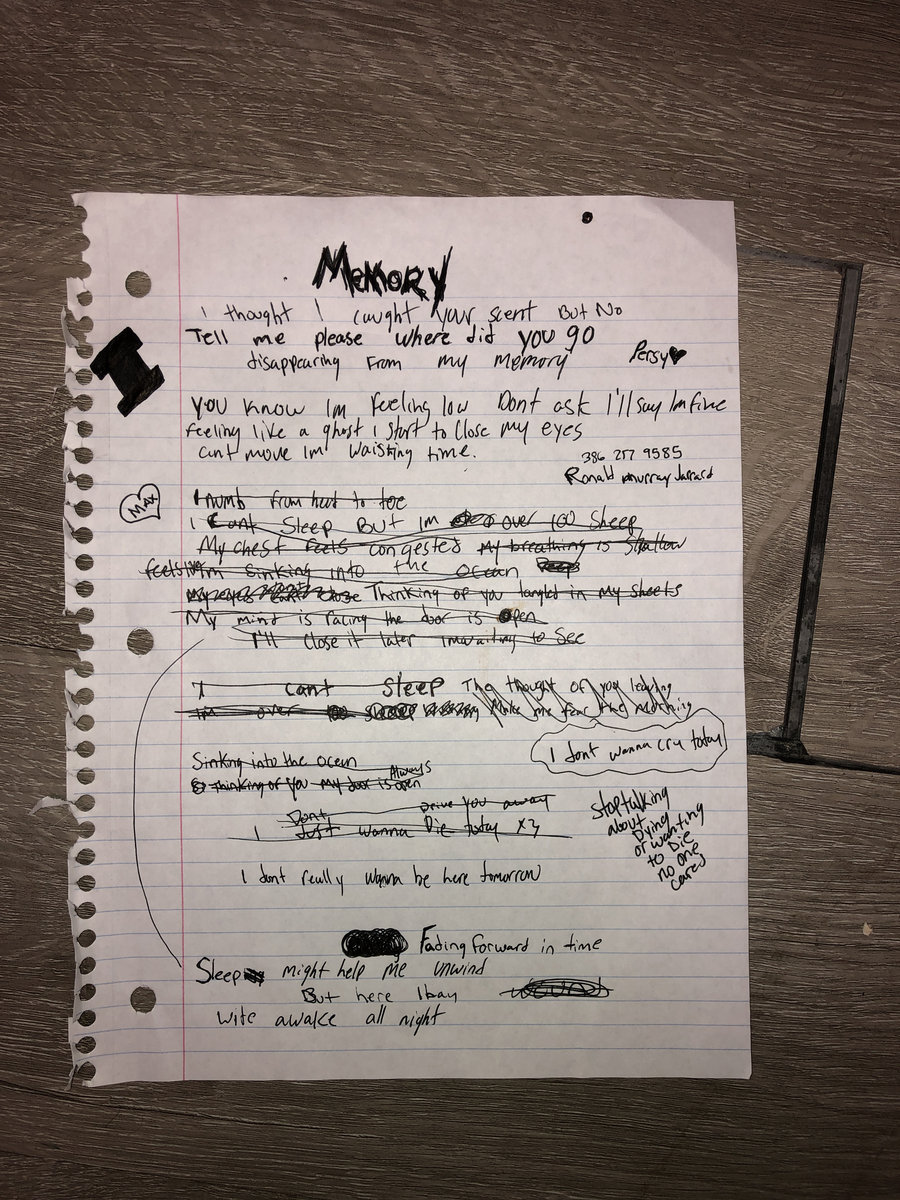 Memory
I thought I caught your scent But No
Tell me please where did you go
disappearing From my memory
Persy
I
you know Im feeling low Dont ask I'll say Im fine
feeling like a ghost I start to close my eyes
cant move Im waisting time.
386 217 9585
Ronald Murray Jarrard
MAX
I numb from head to toe
I cant Sleep But Im over 100 Sheep
My chest feels congested My breathing is shallow
feels like Im sinking into the ocean Deep
My eyes cant close Thinking of you tangled in my sheets
My mind is facing the door is open
I'll close it later im waiting to see
I cant Sleep The thought of you leaving
im over Make me fear the morning
I dont wanna cry today
Sinking into the ocean
thinking of you My door is Always open
Dont Drive you away
I Just wanna Die today x3
Stop talking
about
Dying
or wanting
to Die
no one
cares
I dont really wanna be here tomorrow
Fading forward in time
Sleep might help me unwind
But here I lay
wite awake all night